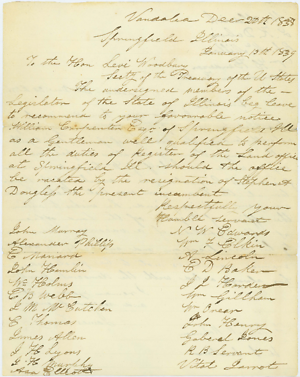 Vandalia Dec 20th 1838
Springfield Illinois
January 13th 1839
To the Hon. Levi Woodbury
Secty of the Treasury of the U States
The undersigned members of the
Legislature of the State of Illinois beg leave
to recommend to your favourable notice
William Carpenter Esq of Springfield Ill
as a Gentleman well qualified to perform
all the duties of Register of the Land office
at Springfield Ill. should the office
be vacated by the resignation of Stephen A
Douglass the present incumbent
Respectfully your
Humble servant
John Murray
Alexander Phillips
E Menard
John Hamlin
Wm Holmes
E B Webb
J M McCutchen
E Thomas
James Allen
J H Lyons
J H
N W Edwards
Wm F Elkin
A Lincoln
E D Baker
J J Hardin
Wm Gillham
John Henry
Gabriel Jones
R B Servant
Vital Jarrot